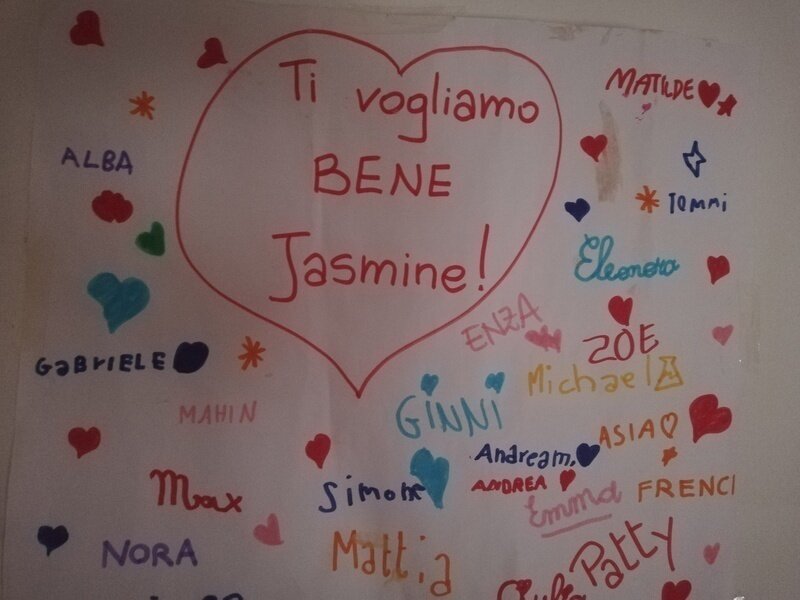 Ti vogliamo
BENE
Jasmine!
MATILDE
ALBA
TOMMI
Eleonora
ENZA
ZOE
GaBRIELE
Michael
MAHIN
GiNNi
ASIA
Andrea m.
ANDREA
Max
Simone
Emma
FRENCI
NORA
Mattia
Patty
Giulia